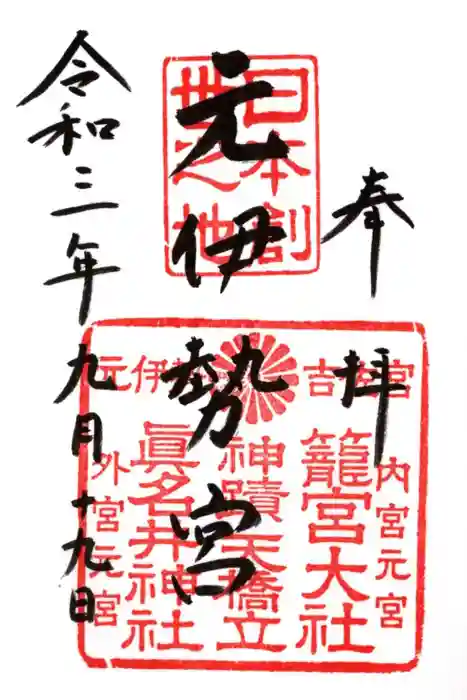 奉拝
日本創
世之地
元伊勢宮
内宮元宮
籠宮大社
神蹟天橋立
眞名井神社
外宮元宮
令和三年九月十九日